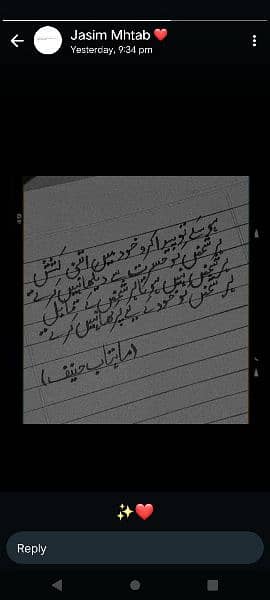 Jasim Mhtab ❤️
Yesterday, 9:34 pm
ہو سکے تو پیدا کرو خود میں اتنی کشش
ہر شخص کو حسرت سے دیکھا نہیں کرتے
ہر شخص نہیں ہوتا ہر شخص کے قابل
ہر شخص کو خود کے لیے پرکھا نہیں کرتے
(ماہتاب حنیف)
✨❤️
Reply